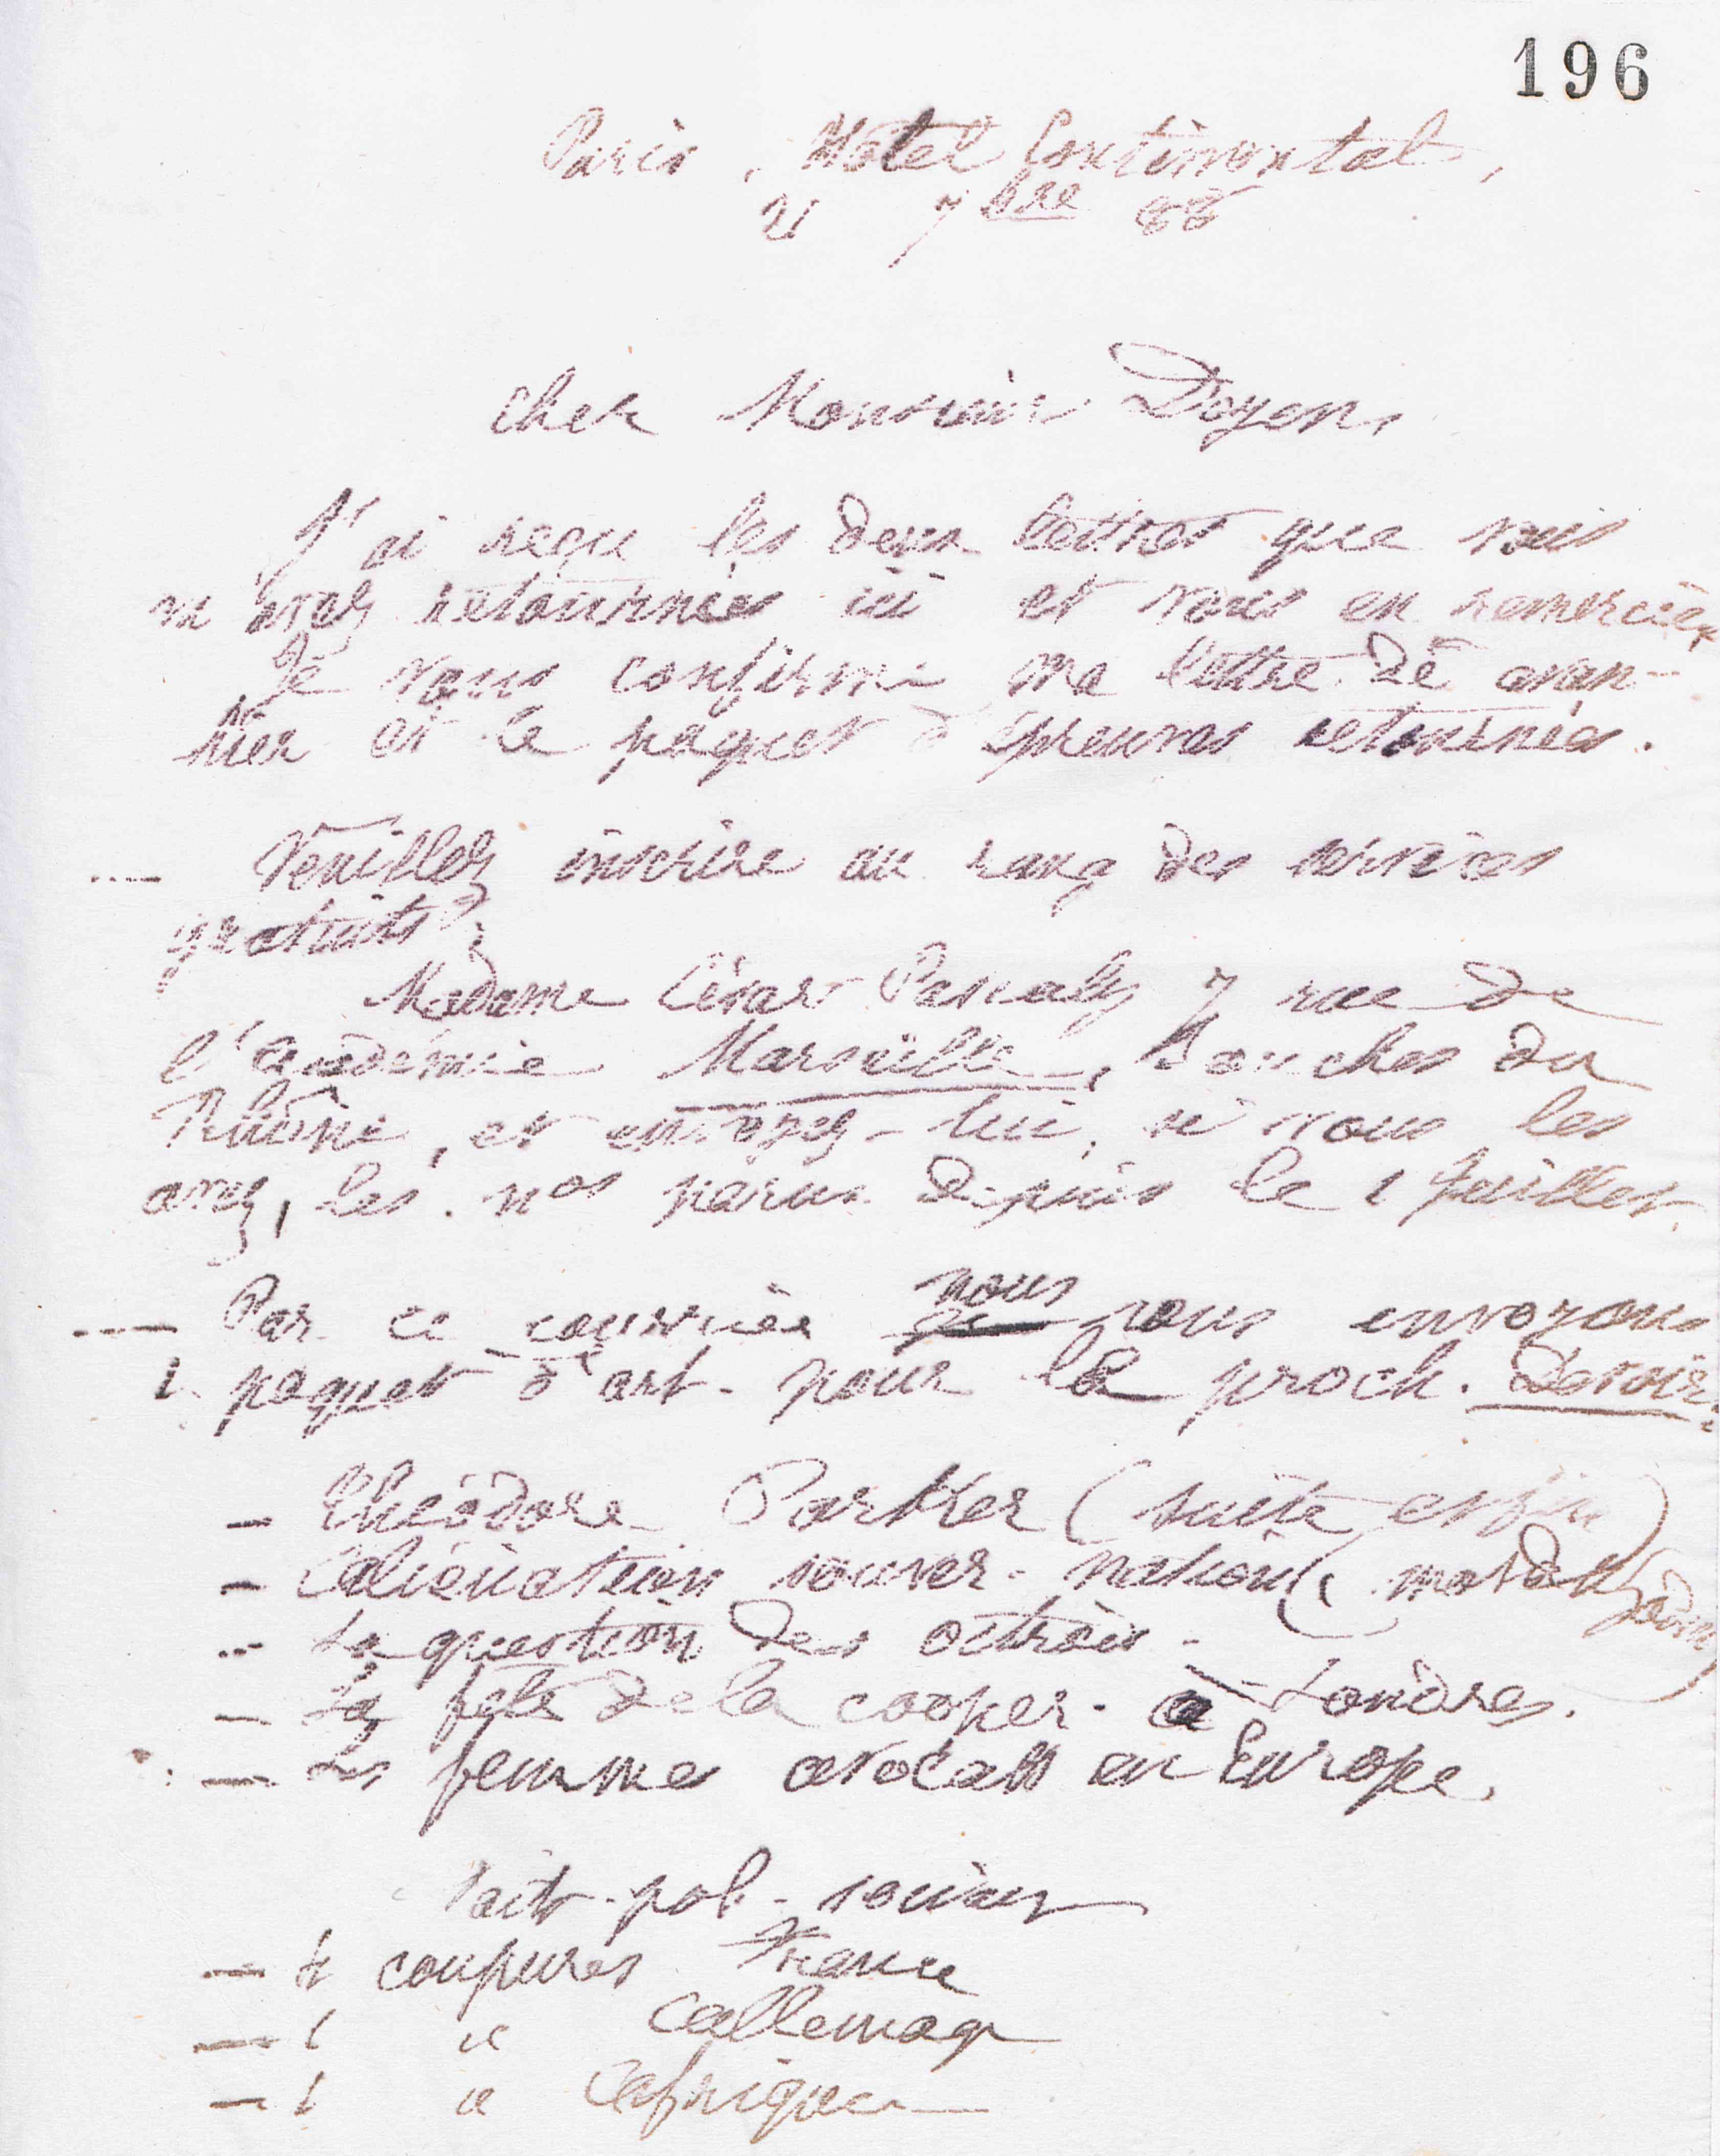 196
Paris, Hôtel Continental,
21 7bre 88
Cher Monsieur Doyen,
J'ai reçu les deux lettres que vous
m'avez retournées ici et vous en remercie.
Je vous confirme ma lettre de avan-
hier et le paquet d'épreuves retournées.
--- Veuillez inscrire au rang des services
gratuits:
Madame César Pascaly 7 rue de
l'académie Marseille, Bouches du
Rhône, et envoyez-lui, si vous les
avez, les nos parus depuis le 1 Juillet.
--- Par ce courrier nous vous envoyons
1 paquet d'art. pour le proch. Devoir:
- Théodore Parker (suite et fin)
- Aliénation souver. nation(
- La question des octrois -
- La fête de la cooper. à Londres.
- Les femmes avocats en Europe.
Faits pol. sociaux
- 4 coupures France
- 1 " Allemag
- 1 " Afrique